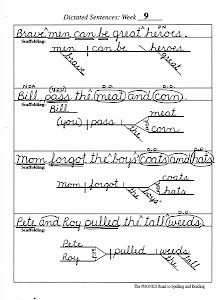 Dictated Sentences: Week 9
Brave men can be great heroes.
Scaffolding:
men can be heroes
brave great
Bill, pass the meat and corn.
Scaffolding:
Bill
(you) pass meat
corn
the
Mom forgot the boys' coats and hats.
Scaffolding:
Mom forgot coats
hats
the boys'
Pete and Roy pulled the tall weeds.
Scaffolding:
Pete
Roy pulled weeds
the tall
The PHONICS Road to Spelling and Reading